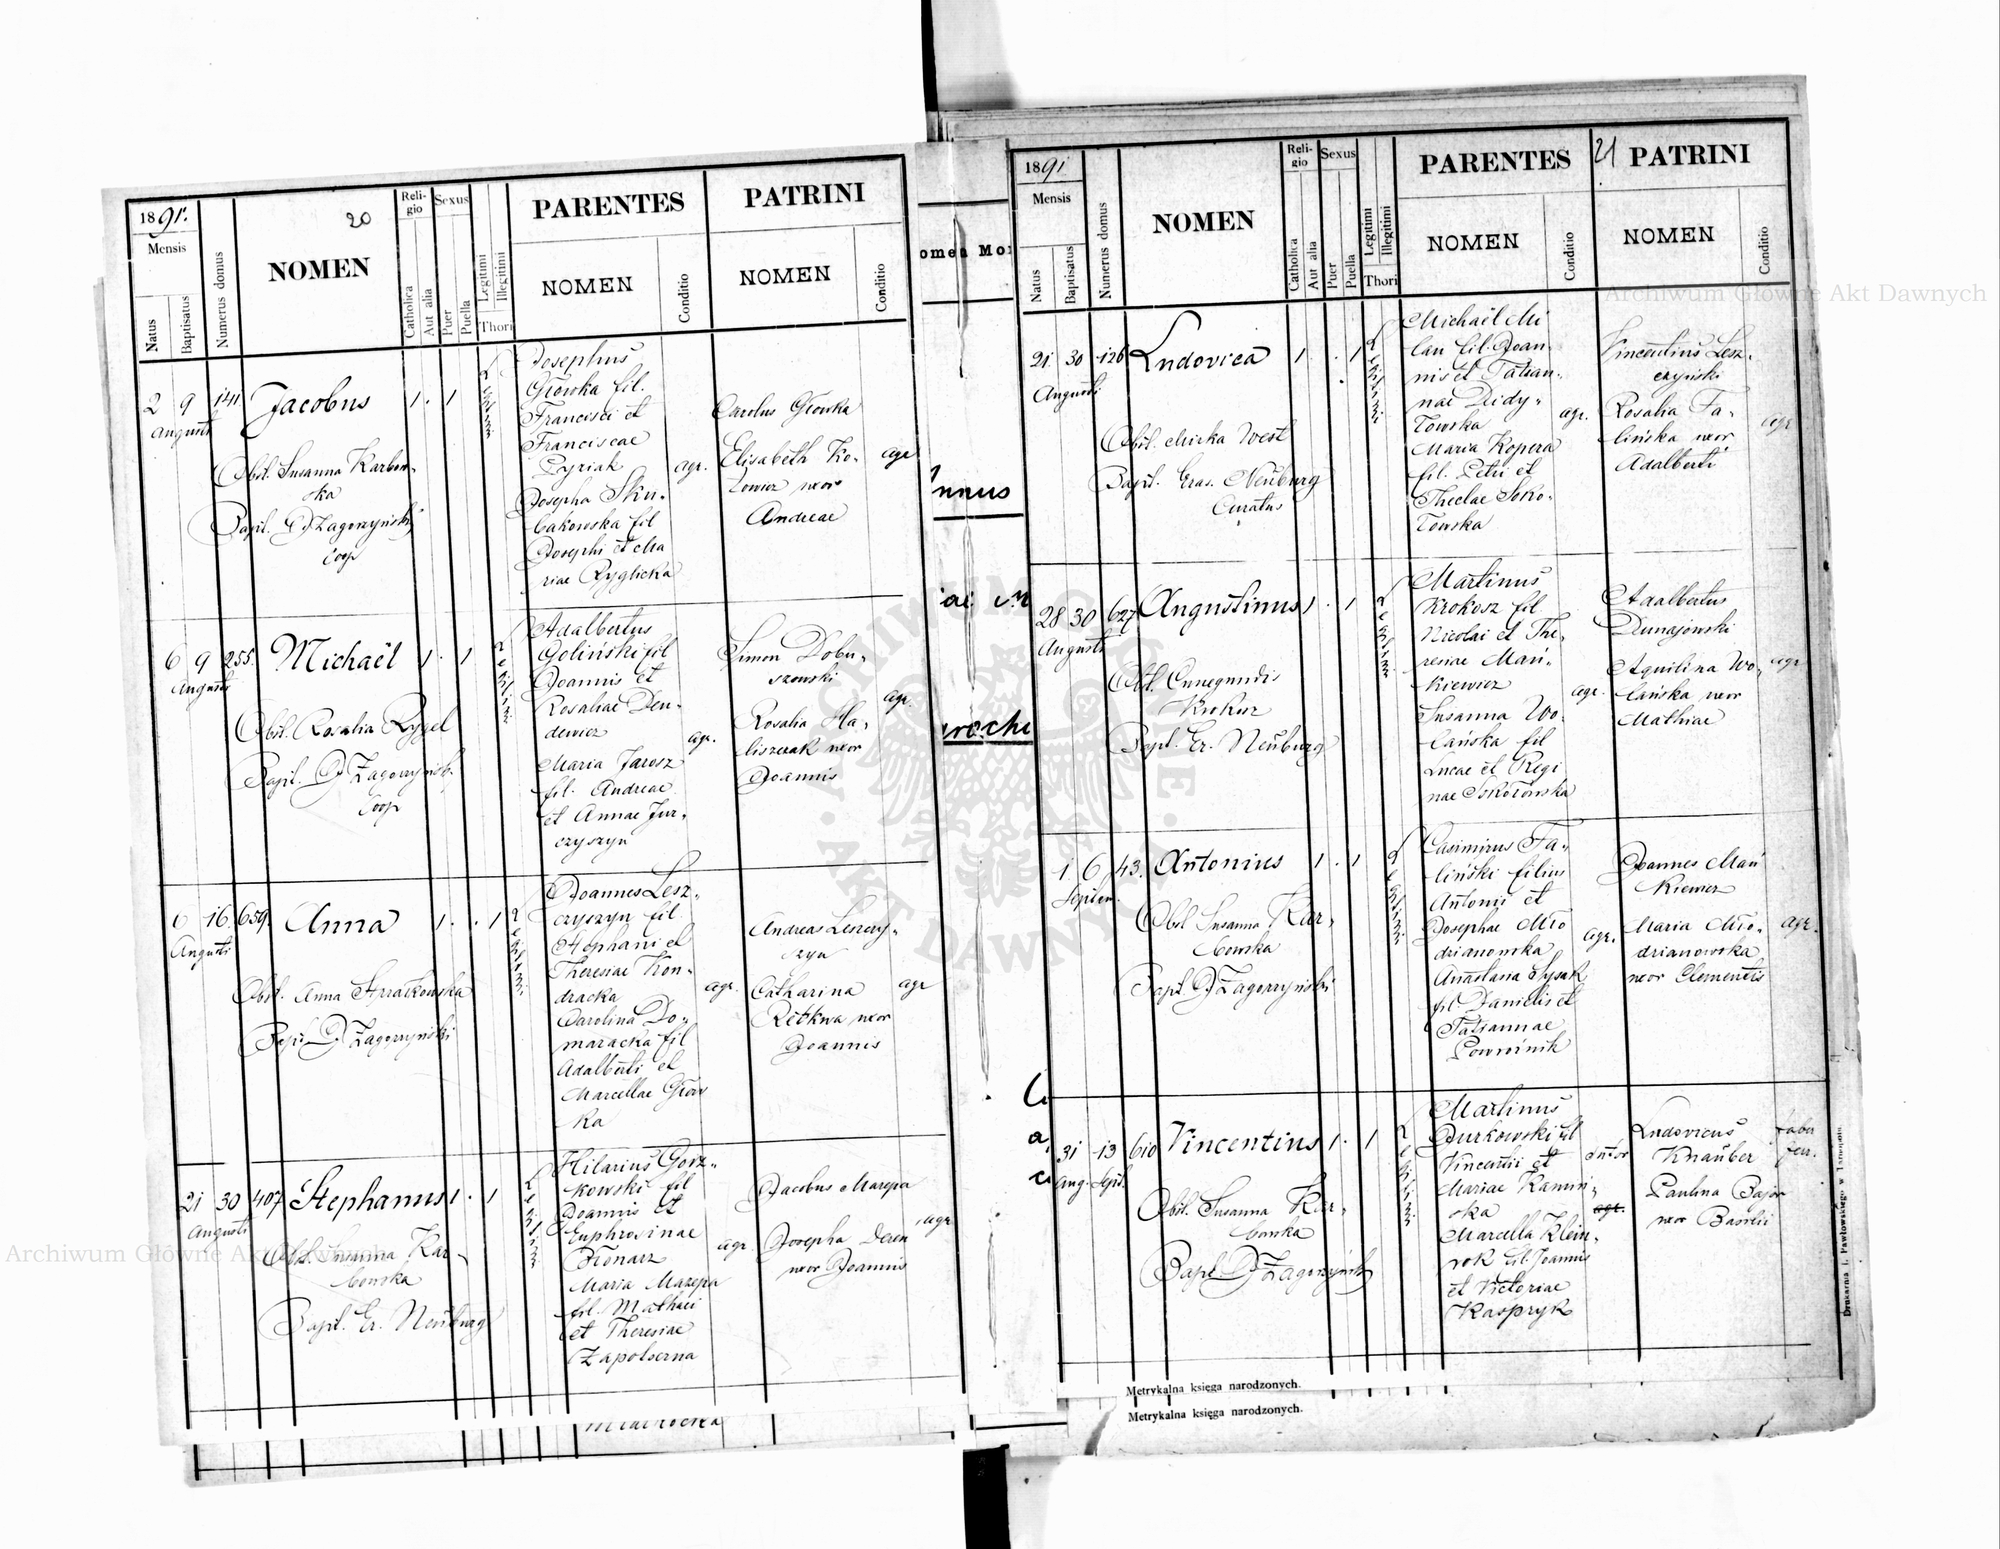 1891.
Mensis
Natus
Baptisatus
Numerus domus
20
NOMEN
Reli-
gio
Catholica
Aut alia
Sexus
Puer
Puella
Legitimi
Illegitimi
Thori
PARENTES
NOMEN
Conditio
PATRINI
NOMEN
Conditio
2 9 141 Jacobus 1 . 1
Augusti
Obst. Susanna Karbow-
ska
Bapt. J Zagorzyński
coop
Josephus
Głowka fil.
Francisci et
Franciscae
Cyriak
Josepha Sku-
bakowska fil
Josephi et Ma
riae Ryglicka
agr.
Carolus Głowka
Elisabeth Ko-
towicz uxor
Andreae
agr
6 9 255. Michaël 1 . 1
Augusti
Obst. Rosalia Rygel
Bapt. J Zagorzyńsk.
coop
Adalbertus
Goliński fil
Joannis et
Rosaliae Den-
dewicz
Maria Jarosz
fil. Andreae
et Annae Jur-
czyszyn
agr.
Simon Dobu-
szowski
Rosalia Ha-
liszczak uxor
Joannis
agr.
6 16. 659. Anna 1 . . 1
Augusti
Obst. Anna
Bapt. J Zagorzyński
Joannes Lesz-
czyszyn fil
Stephani et
Theresiae Kon-
dracka
Carolina Do-
maracka fil
Adalberti et
Marcellae Głow
ka
agr.
Andreas Leszczy-
szyn
Catharina
Retkwa uxor
Joannis
agr
21 30 407 Stephanus 1 . 1
Augusti
Obst. Susanna Kar-
bowska
Bapt. Er. Neüburg
Hilarius Gorz-
kowski fil
Joannis et
Euphrosinae
Błonarz
Maria Mazepa
fil. Mathaei
et Theresiae
Zapolserna
agr.
Jacobus Mazepa
Josepha Deren
uxor Joannis
agr
omen Mo
nnus
roche
1891
Mensis
Natus
Baptisatus
Numerus domus
NOMEN
Reli-
gio
Catholica
Aut alia
Sexus
Puer
Puella
Legitimi
Illegitimi
Thori
PARENTES
NOMEN
Conditio
21 PATRINI
NOMEN
Conditio
21 30 126 Ludovica 1 . 1
Augusti
Obst. Micka West
Bapt. Eras. Neüburg
Curatus
Michaël Mi
lan fil. Joan-
nis et Tatian-
nae Didy-
towska
Maria Kopera
fil. Petri et
Theclae Soko-
łowska
agr.
Vincentius Lesz-
czyński
Rosalia Fa-
lińska uxor
Adalberti
agr
28 30 627 Augustinus 1 . 1
Augusti
Obst. Cunegundis
Krokosz
Bapt. Er. Neüburg
Martinus
Krokosz fil
Nicolai et The-
resiae Mań-
kiewicz
Susanna Wo-
lańska fil
Lucae et Regi
nae Sokołowska
agr.
Adalbertus
Dunajowski
Aquilina Wo-
lańska uxor
Mathiae
agr
1 6 43. Antonius 1 . 1
Septem.
Obst Susanna Kar-
bowska
Bapt. J Zagorzyński
Casimirus Fa-
liński filius
Antonii et
Josephae Mło
drianowska
Anastasia Sysak
fil. Danielis et
Tatiannae
Powroźnik
agr.
Joannes Mań
kiewicz
Maria Mło-
drianowska
uxor Clementis
agr.
31 13 610 Vincentius 1 . 1
Aug. Sept.
Obst. Susanna Kar-
bowska
Bapt. J Zagorzyńsk
Martinus
Burkowski fil
Vincentii et
Mariae Kamin-
ska
Marcella Klein-
rok fil. Joannis
et Victoriae
Kaspryk
sutor
agr.
Ludovicus
Knaüber
Paulina Bajor
uxor Basilii
faber
ferr.
Metrykalna księga narodzonych.
Metrykalna księga narodzonych.
Drukarnia J. Pawłowskiego w Tarnopolu.
Archiwum Główne Akt Dawnych
Archiwum Główne Akt Dawnych
ARCHIWUM GŁÓWNE
· AKT DAWNYCH ·